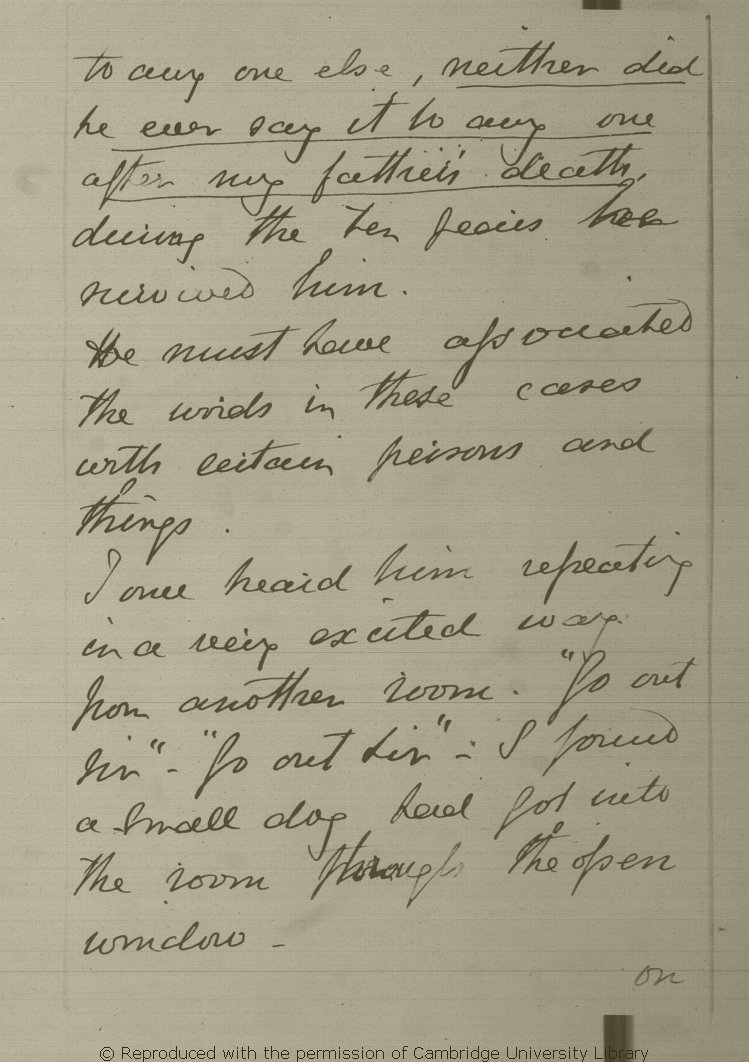 to any one else, neither did
he ever say it to any one
after my father's death,
during the ten years he
survived him.
He must have associated
the words in these cases
with certain persons and
things.
I once heard him repeating
in a very excited way
from another room. "Go out
sir" - "Go out sir" - I found
a small dog had got into
the room through the open
window -
on
© Reproduced with the permission of Cambridge University Library